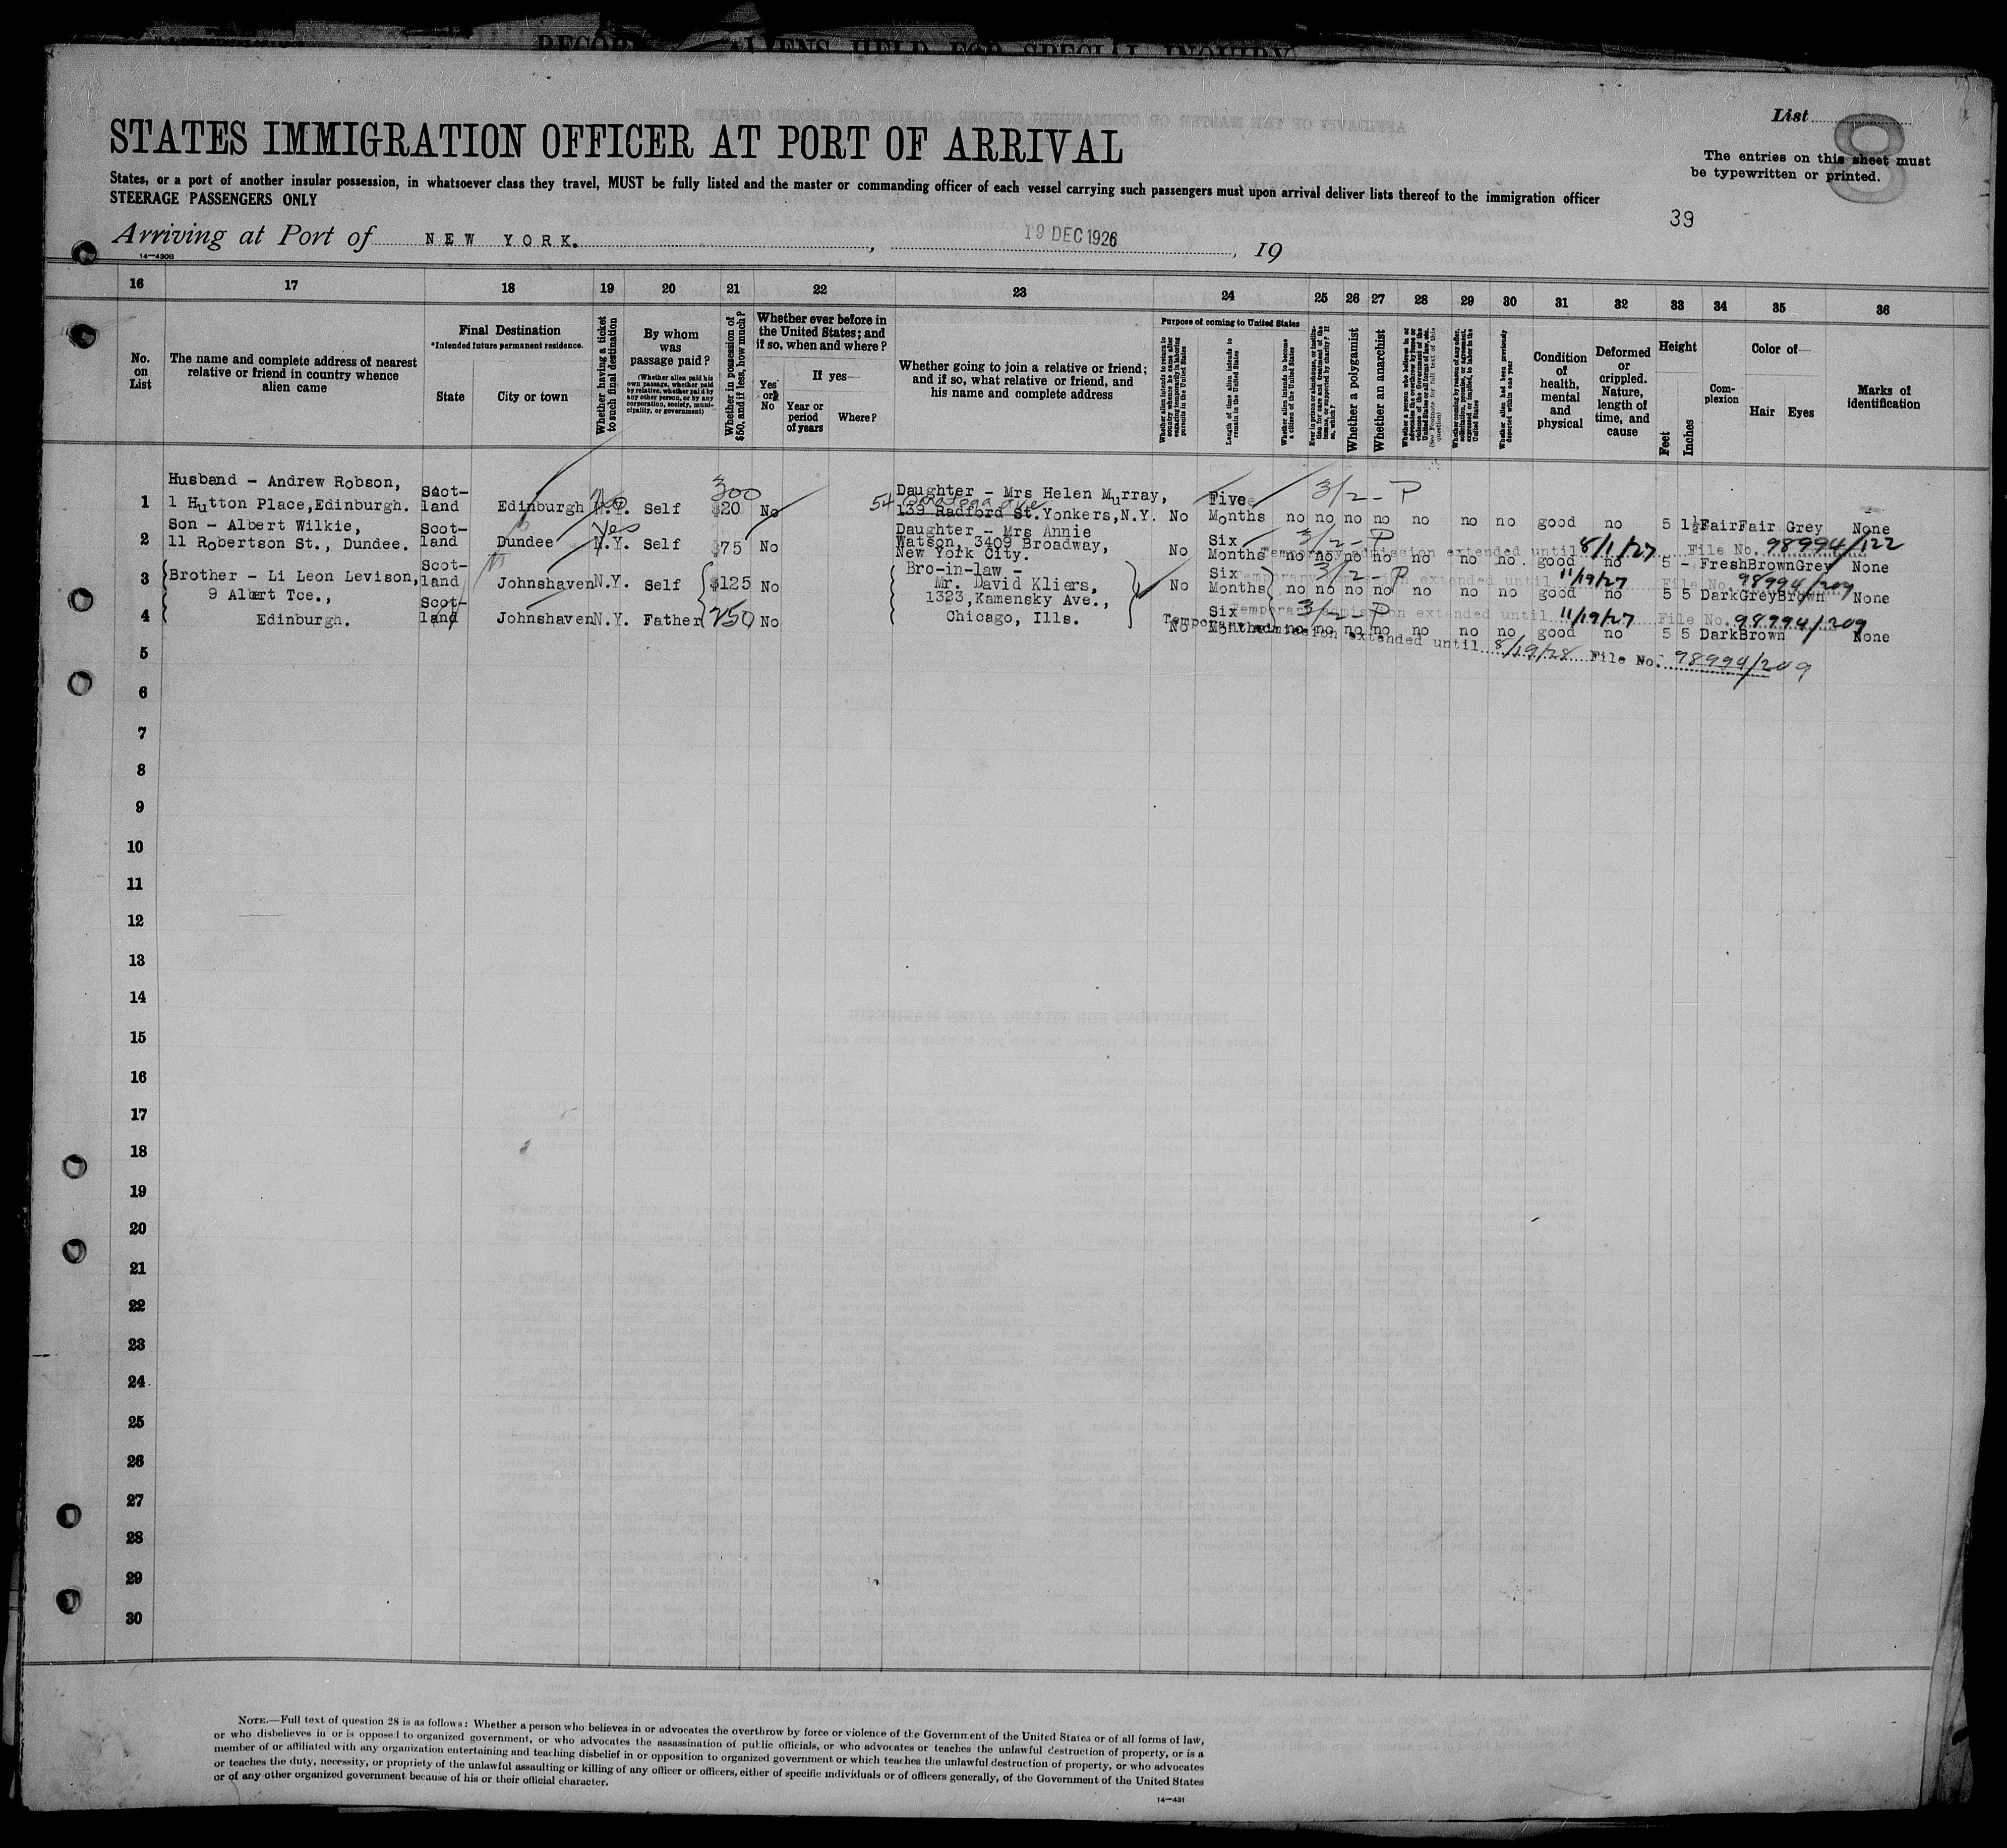 RECORD ALIENS HELD FOR SPECIAL INQUIRY
List
8
STATES IMMIGRATION OFFICER AT PORT OF ARRIVAL
The entries on this sheet must
be typewritten or printed.
States, or a port of another insular possession, in whatsoever class they travel, MUST be fully listed and the master or commanding officer of each vessel carrying such passengers must upon arrival deliver lists thereof to the immigration officer
STEERAGE PASSENGERS ONLY
39
Arriving at Port of NEW YORK. , 19 DEC 1926 , 19
14—430B
16 17 18 19 20 21 22 23 24 25 26 27 28 29 30 31 32 33 34 35 36
No. on List
The name and complete address of nearest relative or friend in country whence alien came
Final Destination
*Intended future permanent residence.
State
City or town
Whether having a ticket to such final destination
By whom was passage paid?
(Whether alien paid his own passage, whether paid by relative, whether paid by any other person, or by any corporation, society, municipality, or government)
Whether in possession of $50, and if less, how much?
Whether ever before in the United States; and if so, when and where?
Yes or No
If yes—
Year or period of years
Where?
Whether going to join a relative or friend; and if so, what relative or friend, and his name and complete address
Purpose of coming to United States
Length of time alien intends to remain in the United States
Whether alien intends to become a citizen of the United States
Whether a polygamist
Whether an anarchist
Whether alien had been previously deported within one year
Condition of health, mental and physical
Deformed or crippled. Nature, length of time, and cause
Height
Feet
Inches
Complexion
Color of—
Hair Eyes
Marks of identification
300
Husband - Andrew Robson, Daughter - Mrs Helen Murray, 3/2 - P
1 1 Hutton Place, Edinburgh. Scot-land Edinburgh N.Y. No Self $20 No 54 Saratoga Ave 139 Radford St. Yonkers, N.Y. No Five Months no no no no no no no good no 5 1½ Fair Fair Grey None
Son - Albert Wilkie, Yes Daughter - Mrs Annie 3/2 - P
2 11 Robertson St., Dundee. Scot-land Dundee N.Y. Self $75 No Watson, 3409 Broadway, New York City. No Six Months no no no no no no no good no 5 - Fresh Brown Grey None
Temporary admission extended until 8/1/27 File No. 98994/122
3 Brother - Li Leon Levison, Scot-land Johnshaven N.Y. Self $125 No Bro-in-law - Mr. David Kliers, No Six Months 3/2 - P no no no no no no no good no 5 5 Dark Grey Brown None
Temporary admission extended until 11/19/27 File No. 98994/209
9 Albert Tce., 1323, Kamensky Ave.,
4 Edinburgh. Scot-land Johnshaven N.Y. Father 250 No Chicago, Ills. No Six Months 3/2 - P no no no no no no no good no 5 5 Dark Brown None
Temporary admission extended until 11/19/27 File No. 98994/209
Temporary admission extended until 8/19/28 File No. 98994/209
5
6
7
8
9
10
11
12
13
14
15
16
17
18
19
20
21
22
23
24
25
26
27
28
29
30
NOTE.—Full text of question 28 is as follows: Whether a person who believes in or advocates the overthrow by force or violence of the Government of the United States or of all forms of law,
or who disbelieves in or is opposed to organized government, or who advocates the assassination of public officials, or who advocates or teaches the unlawful destruction of property, or is a
member of or affiliated with any organization entertaining and teaching disbelief in or opposition to organized government or which teaches the unlawful destruction of property, or who advocates
or teaches the duty, necessity, or propriety of the unlawful assaulting or killing of any officer or officers, either of specific individuals or of officers generally, of the Government of the United States
or of any other organized government because of his or their official character.
14—431